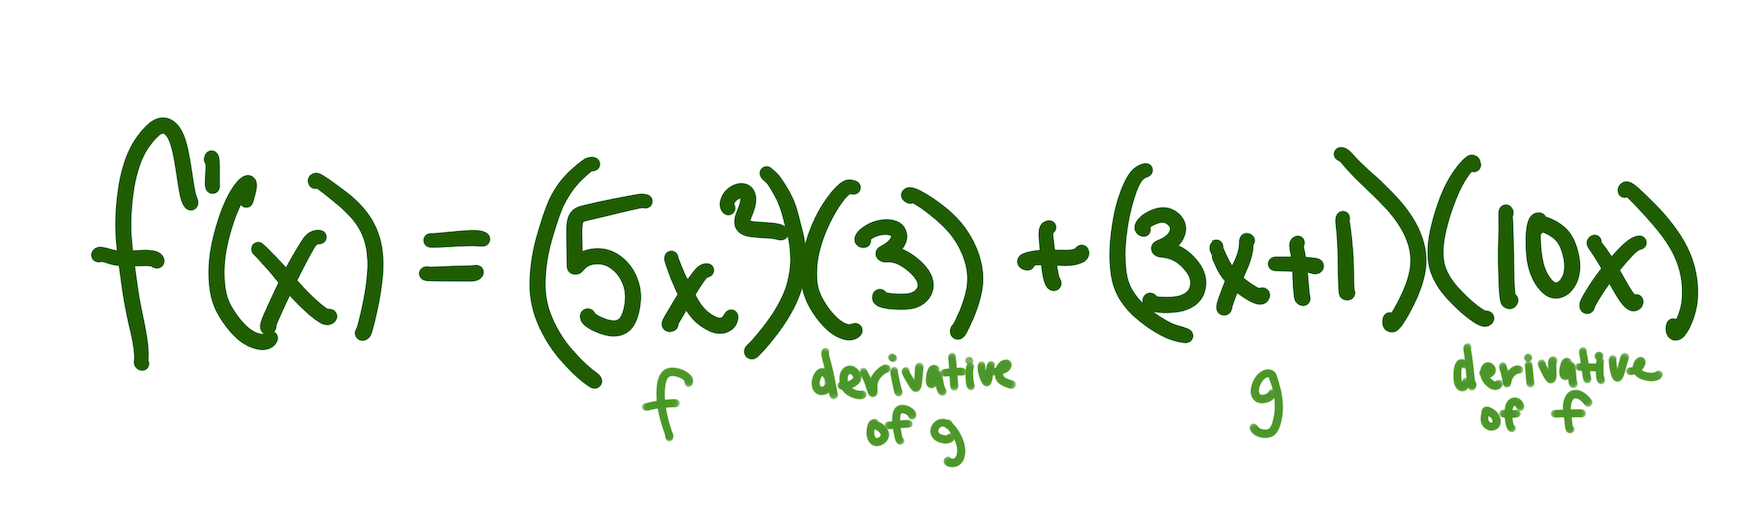 f'(x) = (5x²)(3) + (3x+1)(10x)
f derivative of g g derivative of f